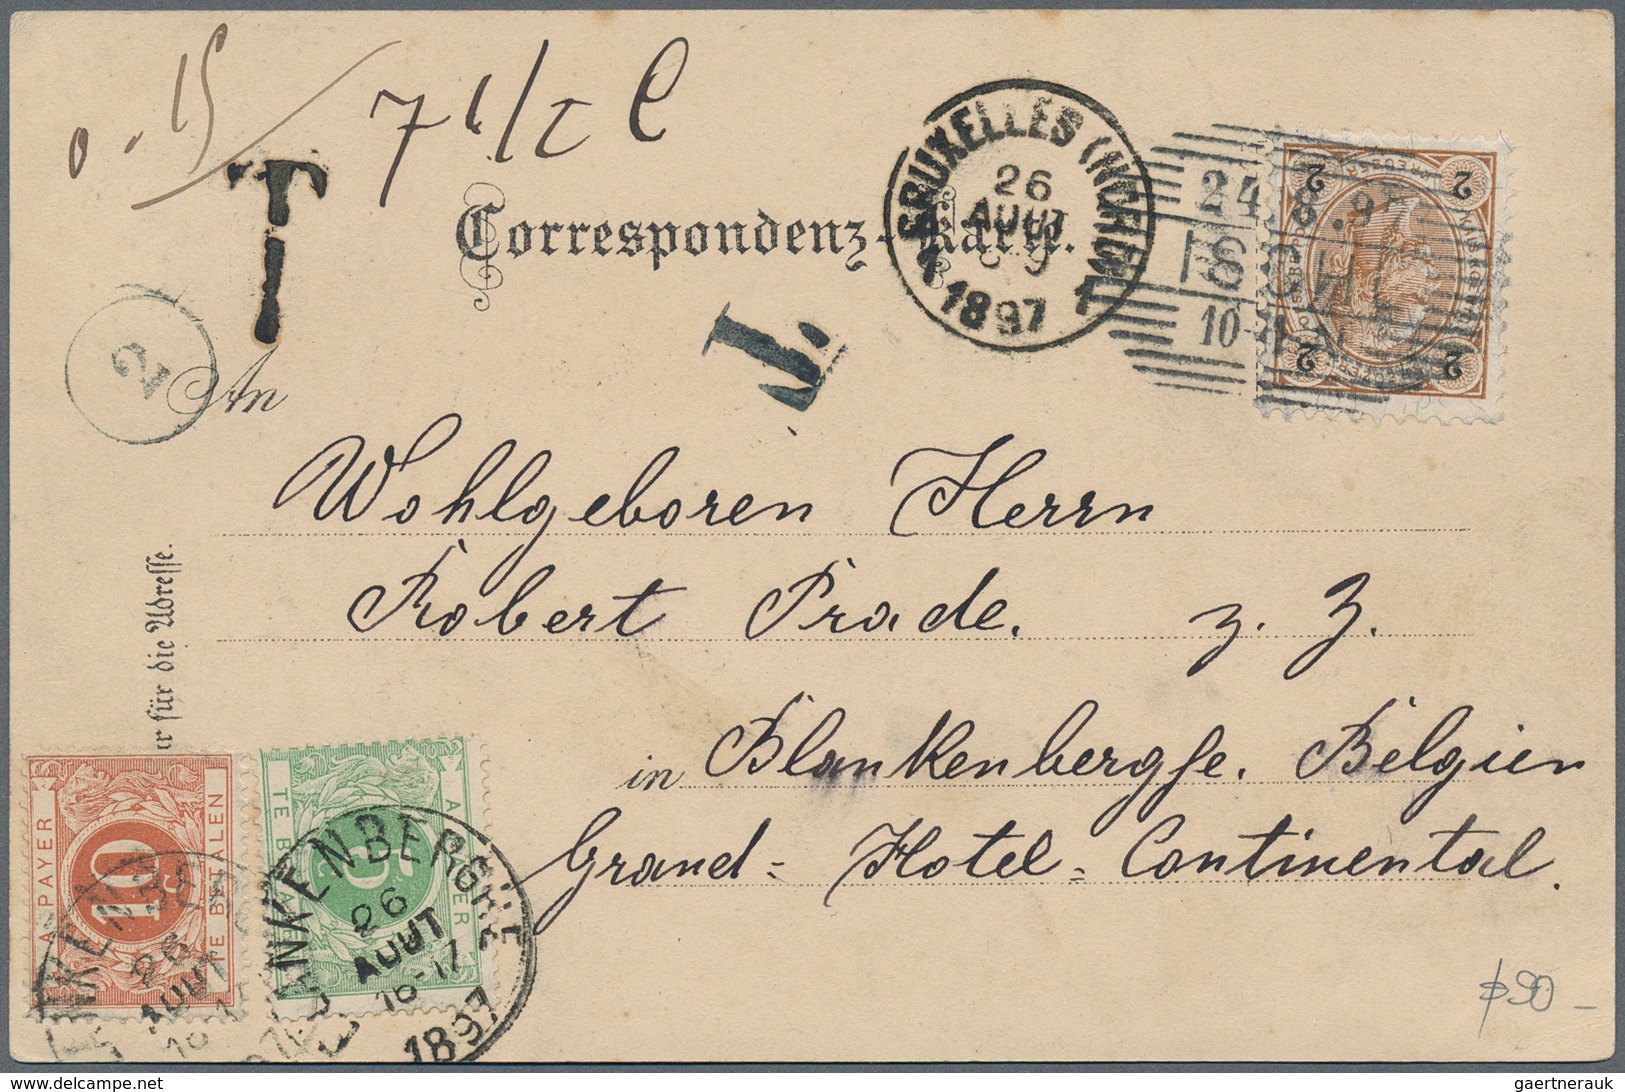 0.15 / 7 1/2 C
T
Correspondenz-Karte.
BRUXELLES (NORD)
26
AOUT
1897
1
24.8.97
ISCHL
10-11
2 2
KREUZER
2 2
2
T.
An
Wohlgeboren Herrn
Robert Prade. z. Z.
in Blankenberghe. Belgien
Grand-Hotel-Continental.
für die Adresse.
A PAYER
10
TE BETALEN
A PAYER
5
TE BETALEN
BLANKENBERGHE
26
AOUT
16-17
1897
26
AOUT
50-
gaertnerauk@delcampe